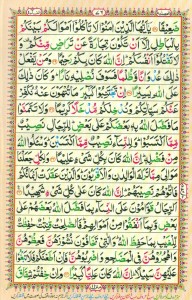 ضَعِيْفًا يٰۤاَيُّهَا الَّذِيْنَ اٰمَنُوْا لَا تَاْكُلُوْۤا اَمْوَالَكُمْ بَيْنَكُمْ
بِالْبَاطِلِ اِلَّاۤ اَنْ تَكُوْنَ تِجَارَةً عَنْ تَرَاضٍ مِّنْكُمْ وَلَا
تَقْتُلُوْۤا اَنْفُسَكُمْ اِنَّ اللّٰهَ كَانَ بِكُمْ رَحِيْمًا وَمَنْ يَّفْعَلْ
ذٰلِكَ عُدْوَانًا وَّظُلْمًا فَسَوْفَ نُصْلِيْهِ نَارًا وَكَانَ ذٰلِكَ عَلَى
اللّٰهِ يَسِيْرًا اِنْ تَجْتَنِبُوْا كَبَآئِرَ مَا تُنْهَوْنَ عَنْهُ نُكَفِّرْ
عَنْكُمْ سَيِّاٰتِكُمْ وَنُدْخِلْكُمْ مُّدْخَلًا كَرِيْمًا وَلَا تَتَمَنَّوْا
مَا فَضَّلَ اللّٰهُ بِهٖ بَعْضَكُمْ عَلٰى بَعْضٍ لِلرِّجَالِ نَصِيْبٌ
مِّمَّا اكْتَسَبُوْا وَلِلنِّسَآءِ نَصِيْبٌ مِّمَّا اكْتَسَبْنَ وَسْئَلُوا اللّٰهَ
مِنْ فَضْلِهٖ اِنَّ اللّٰهَ كَانَ بِكُلِّ شَىْءٍ عَلِيْمًا وَلِكُلٍّ جَعَلْنَا
مَوَالِىَ مِمَّا تَرَكَ الْوَالِدٰنِ وَالْاَقْرَبُوْنَ وَالَّذِيْنَ عَقَدَتْ اَيْمَانُكُمْ
فَاٰتُوْهُمْ نَصِيْبَهُمْ اِنَّ اللّٰهَ كَانَ عَلٰى كُلِّ شَىْءٍ شَهِيْدًا
اَلرِّجَالُ قَوّٰمُوْنَ عَلَى النِّسَآءِ بِمَا فَضَّلَ اللّٰهُ بَعْضَهُمْ عَلٰى
بَعْضٍ وَّبِمَاۤ اَنْفَقُوْا مِنْ اَمْوَالِهِمْ فَالصّٰلِحٰتُ قٰنِتٰتٌ حٰفِظٰتٌ
لِّلْغَيْبِ بِمَا حَفِظَ اللّٰهُ وَالّٰتِىْ تَخَافُوْنَ نُشُوْزَهُنَّ فَعِظُوْهُنَّ
وَاهْجُرُوْهُنَّ فِى الْمَضَاجِعِ وَاضْرِبُوْهُنَّ فَاِنْ اَطَعْنَكُمْ فَلَا تَبْغُوْا
عَلَيْهِنَّ سَبِيْلًا اِنَّ اللّٰهَ كَانَ عَلِيًّا كَبِيْرًا وَاِنْ خِفْتُمْ شِقَاقَ